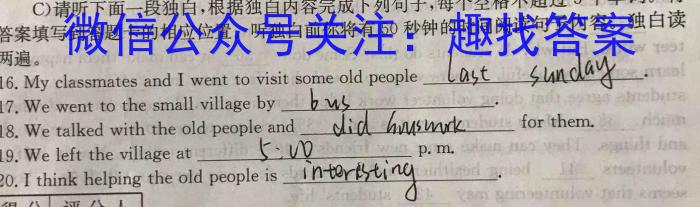 C)请听下面一段独白,根据独白内容完成下列句子,每个空格不超过3个单词。
答案填写到答题卡的相应位置。听独白前你将有50秒钟的时间阅读句子内容。独白读
两遍。
微信公众号关注:趣找答案
16. My classmates and I went to visit some old people last sunday.
17. We went to the small village by bus.
18. We talked with the old people and did housmork for them.
19. We left the village at 5:00 p. m.
20. I think helping the old people is interisting.
得分 评分人